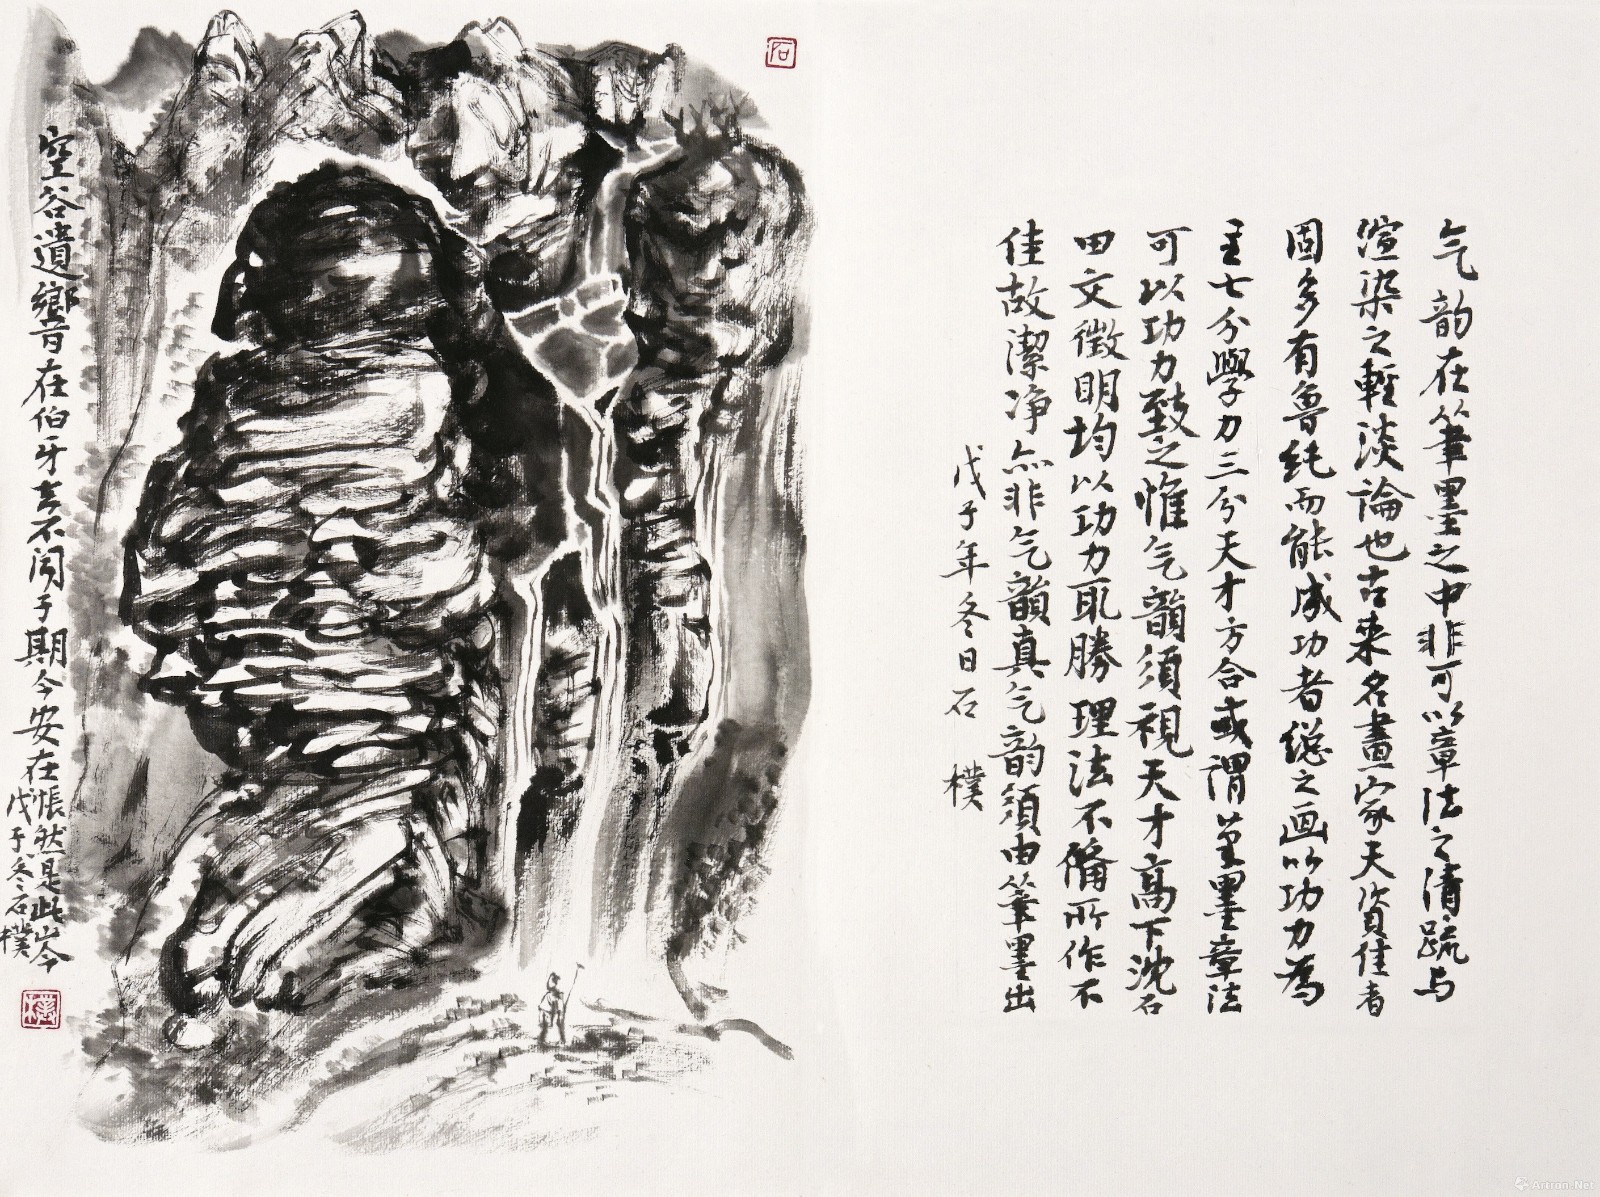 气韵在筆墨之中非可以章法之清疏与
渲染之輕淡論也古来名畫家天資佳者
固多有魯純而能成功者總之画以功力為
主七分學力三分天才方合或謂筆墨章法
可以功力致之惟气韻須視天才高下沈石
田文徵明均以功力取勝理法不備所作不
佳故潔净亦非气韻真气韵須由筆墨出
戊子年冬日石樸
石
空谷遺響在伯牙去不闻子期今安在悵然是此山今
戊子冬石樸
樸
Artron.Net